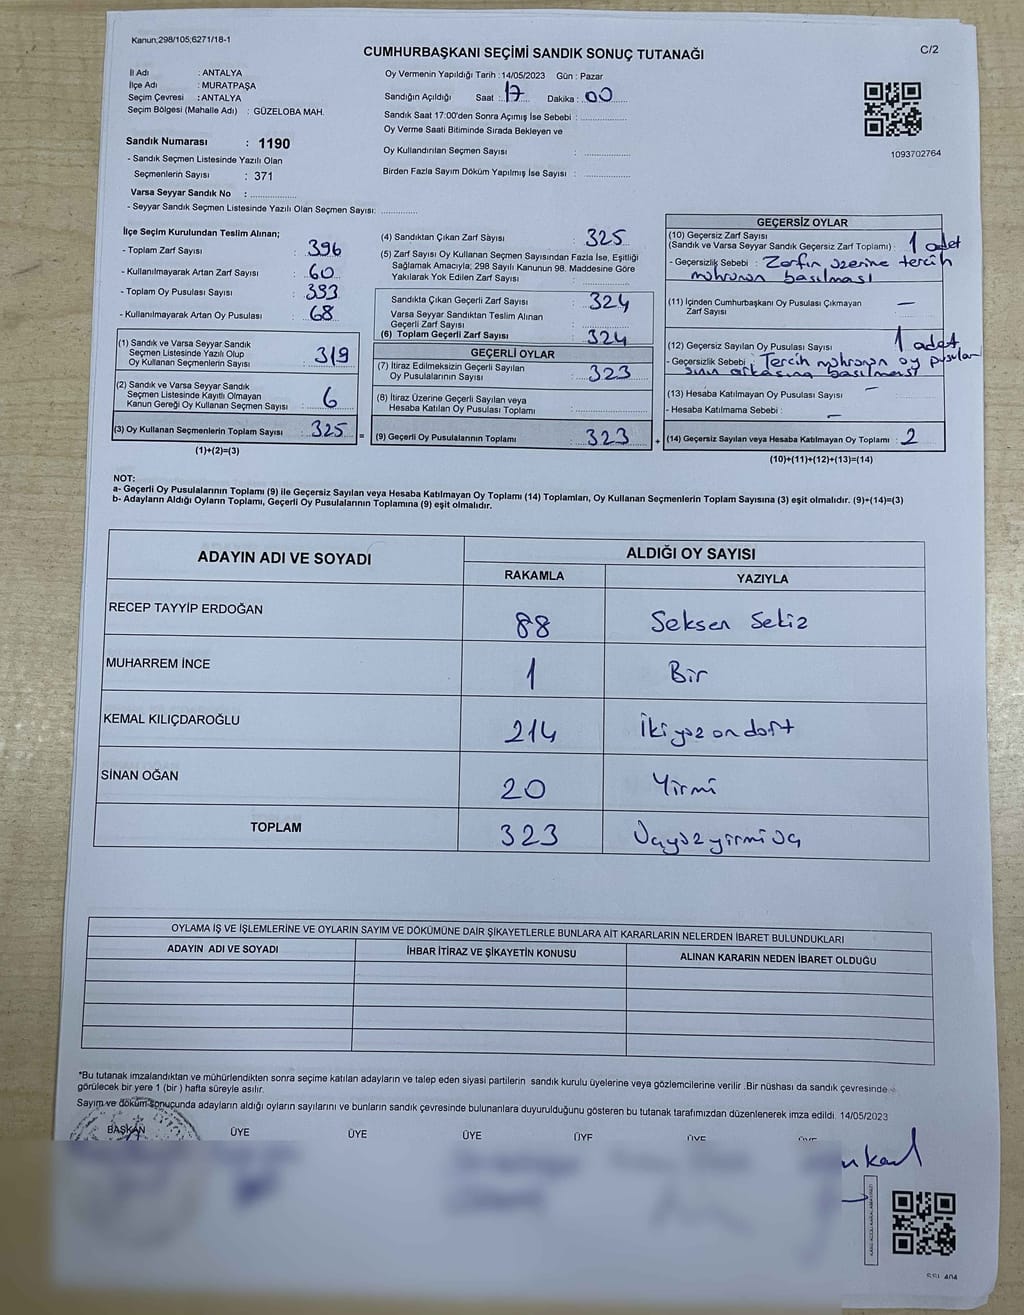 Kanun;298/105;6271/18-1
CUMHURBAŞKANI SEÇİMİ SANDIK SONUÇ TUTANAĞI
C/2
İl Adı : ANTALYA
İlçe Adı : MURATPAŞA
Seçim Çevresi : ANTALYA
Seçim Bölgesi (Mahalle Adı) : GÜZELOBA MAH.
Sandık Numarası : 1190
- Sandık Seçmen Listesinde Yazılı Olan
Seçmenlerin Sayısı : 371
Varsa Seyyar Sandık No : ..................
- Seyyar Sandık Seçmen Listesinde Yazılı Olan Seçmen Sayısı: ..............
Oy Vermenin Yapıldığı Tarih : 14/05/2023 Gün : Pazar
Sandığın Açıldığı Saat : 17 Dakika : 00
Sandık Saat 17:00'den Sonra Açımış İse Sebebi : ..................
Oy Verme Saati Bitiminde Sırada Bekleyen ve
Oy Kullandırılan Seçmen Sayısı : ..................
Birden Fazla Sayım Döküm Yapılmış İse Sayısı : ..................
1093702764
İlçe Seçim Kurulundan Teslim Alınan;
- Toplam Zarf Sayısı : 396
- Kullanılmayarak Artan Zarf Sayısı : 60
- Toplam Oy Pusulası Sayısı : 393
- Kullanılmayarak Artan Oy Pusulası : 68
(1) Sandık ve Varsa Seyyar Sandık
Seçmen Listesinde Yazılı Olup
Oy Kullanan Seçmenlerin Sayısı : 319
(2) Sandık ve Varsa Seyyar Sandık
Seçmen Listesinde Kayıtlı Olmayan
Kanun Gereği Oy Kullanan Seçmen Sayısı : 6
(3) Oy Kullanan Seçmenlerin Toplam Sayısı : 325 =
(1)+(2)=(3)
(4) Sandıktan Çıkan Zarf Sayısı : 325
(5) Zarf Sayısı Oy Kullanan Seçmen Sayısından Fazla İse, Eşitliği
Sağlamak Amacıyla; 298 Sayılı Kanunun 98. Maddesine Göre
Yakılarak Yok Edilen Zarf Sayısı : ..................
Sandıkta Çıkan Geçerli Zarf Sayısı : 324
Varsa Seyyar Sandıktan Teslim Alınan
Geçerli Zarf Sayısı : ..................
(6) Toplam Geçerli Zarf Sayısı : 324
GEÇERLİ OYLAR
(7) İtiraz Edilmeksizin Geçerli Sayılan
Oy Pusulalarının Sayısı : 323
(8) İtiraz Üzerine Geçerli Sayılan veya
Hesaba Katılan Oy Pusulası Toplamı : ..................
(9) Geçerli Oy Pusulalarının Toplamı : 323 +
GEÇERSİZ OYLAR
(10) Geçersiz Zarf Sayısı
(Sandık ve Varsa Seyyar Sandık Geçersiz Zarf Toplamı) : 1 adet
- Geçersizlik Sebebi : Zarfın üzerine tercih
mührünün basılması
(11) İçinden Cumhurbaşkanı Oy Pusulası Çıkmayan
Zarf Sayısı : —
(12) Geçersiz Sayılan Oy Pusulası Sayısı : 1 adet
- Geçersizlik Sebebi : Tercih mührünün oy pusula
sının arkasına basılması
(13) Hesaba Katılmayan Oy Pusulası Sayısı : —
- Hesaba Katılmama Sebebi : —
(14) Geçersiz Sayılan veya Hesaba Katılmayan Oy Toplamı : 2
(10)+(11)+(12)+(13)=(14)
NOT:
a- Geçerli Oy Pusulalarının Toplamı (9) ile Geçersiz Sayılan veya Hesaba Katılmayan Oy Toplamı (14) Toplamları, Oy Kullanan Seçmenlerin Toplam Sayısına (3) eşit olmalıdır. (9)+(14)=(3)
b- Adayların Aldığı Oyların Toplamı, Geçerli Oy Pusulalarının Toplamına (9) eşit olmalıdır.
ADAYIN ADI VE SOYADI
ALDIĞI OY SAYISI
RAKAMLA YAZIYLA
RECEP TAYYİP ERDOĞAN 88 Seksen Sekiz
MUHARREM İNCE 1 Bir
KEMAL KILIÇDAROĞLU 214 İkiyüz ondört
SİNAN OĞAN 20 Yirmi
TOPLAM 323 Üçyüzyirmiüç
OYLAMA İŞ VE İŞLEMLERİNE VE OYLARIN SAYIM VE DÖKÜMÜNE DAİR ŞİKAYETLERLE BUNLARA AİT KARARLARIN NELERDEN İBARET BULUNDUKLARI
ADAYIN ADI VE SOYADI İHBAR İTİRAZ VE ŞİKAYETİN KONUSU ALINAN KARARIN NEDEN İBARET OLDUĞU
*Bu tutanak imzalandıktan ve mühürlendikten sonra seçime katılan adayların ve talep eden siyasi partilerin sandık kurulu üyelerine veya gözlemcilerine verilir .Bir nüshası da sandık çevresinde
görülecek bir yere 1 (bir ) hafta süreyle asılır.
Sayım ve döküm sonuçunda adayların aldığı oyların sayılarını ve bunların sandık çevresinde bulunanlara duyurulduğunu gösteren bu tutanak tarafımızdan düzenlenerek imza edildi. 14/05/2023
BAŞKAN ÜYE ÜYE ÜYE ÜYE ÜYE ÜYE